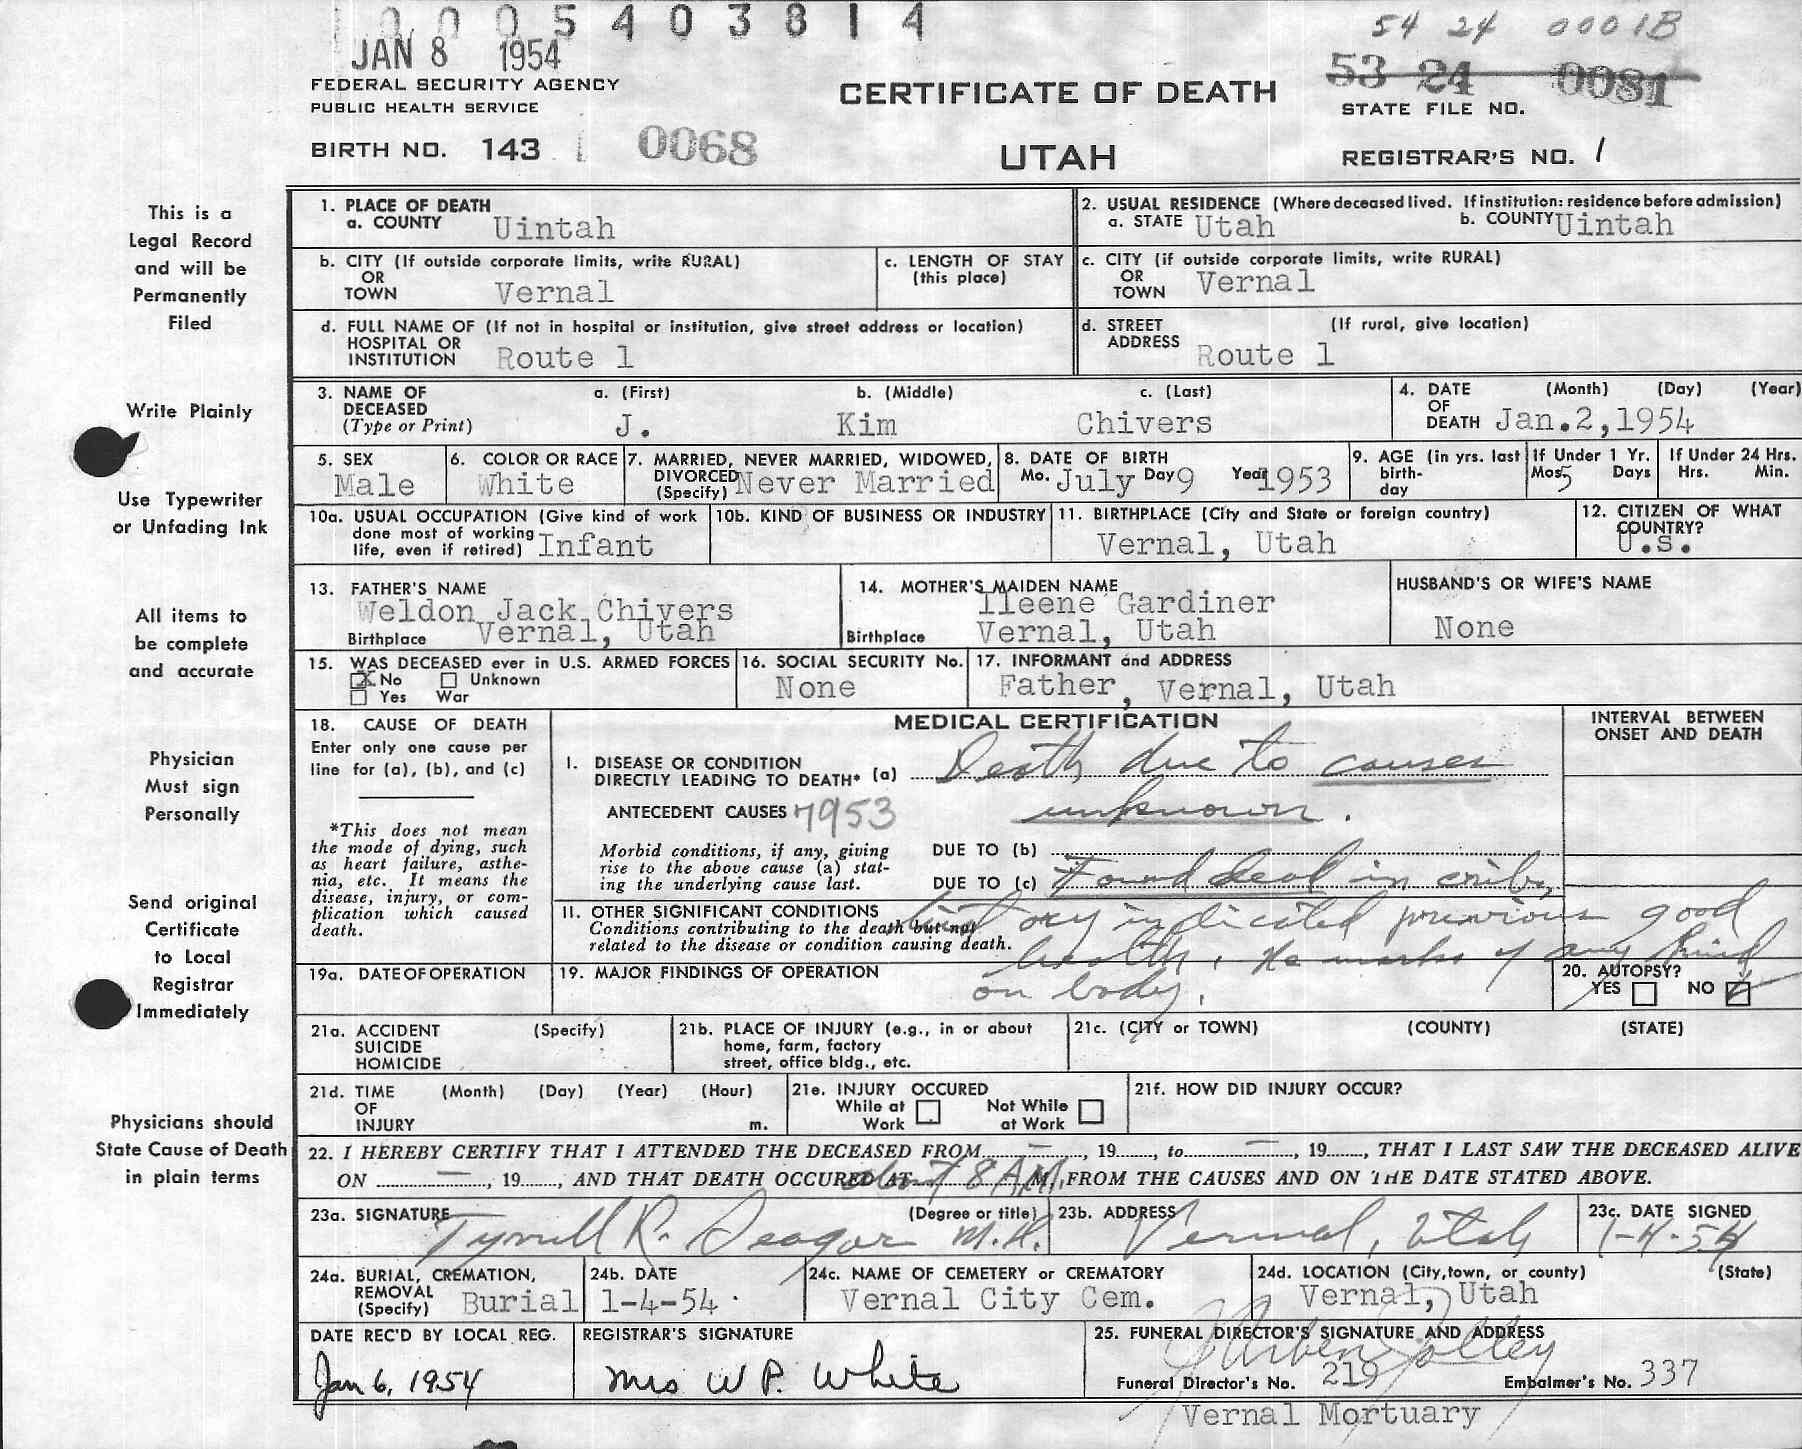 1 0 0 0 5 4 0 3 8 1 4
JAN 8 1954
54 24 0001B
FEDERAL SECURITY AGENCY
PUBLIC HEALTH SERVICE
CERTIFICATE OF DEATH
53 24 0081
STATE FILE NO.
BIRTH NO. 143 0068
UTAH
REGISTRAR'S NO. 1
This is a
Legal Record
and will be
Permanently
Filed
1. PLACE OF DEATH
a. COUNTY Uintah
2. USUAL RESIDENCE (Where deceased lived. If institution: residence before admission)
a. STATE Utah b. COUNTY Uintah
b. CITY (If outside corporate limits, write RURAL)
OR
TOWN Vernal
c. LENGTH OF STAY
(this place)
c. CITY (if outside corporate limits, write RURAL)
OR
TOWN Vernal
d. FULL NAME OF (If not in hospital or institution, give street address or location)
HOSPITAL OR
INSTITUTION Route 1
d. STREET (If rural, give location)
ADDRESS Route 1
Write Plainly
3. NAME OF a. (First) b. (Middle) c. (Last)
DECEASED
(Type or Print) J. Kim Chivers
4. DATE (Month) (Day) (Year)
OF
DEATH Jan.2,1954
Use Typewriter
or Unfading Ink
5. SEX
Male
6. COLOR OR RACE
White
7. MARRIED, NEVER MARRIED, WIDOWED,
DIVORCED
(Specify) Never Married
8. DATE OF BIRTH
Mo. July Day 9 Year 1953
9. AGE (in yrs. last
birth-
day
If Under 1 Yr.
Mos 5 Days
If Under 24 Hrs.
Hrs. Min.
10a. USUAL OCCUPATION (Give kind of work
done most of working
life, even if retired) Infant
10b. KIND OF BUSINESS OR INDUSTRY
11. BIRTHPLACE (City and State or foreign country)
Vernal, Utah
12. CITIZEN OF WHAT
COUNTRY?
U.S.
All items to
be complete
and accurate
13. FATHER'S NAME
Weldon Jack Chivers
Birthplace Vernal, Utah
14. MOTHER'S MAIDEN NAME
Ileene Gardiner
Birthplace Vernal, Utah
HUSBAND'S OR WIFE'S NAME
None
15. WAS DECEASED ever in U.S. ARMED FORCES
X No Unknown
Yes War
16. SOCIAL SECURITY No.
None
17. INFORMANT and ADDRESS
Father, Vernal, Utah
Physician
Must sign
Personally
18. CAUSE OF DEATH
Enter only one cause per
line for (a), (b), and (c)
*This does not mean
the mode of dying, such
as heart failure, asthe-
nia, etc. It means the
disease, injury, or com-
plication which caused
death.
MEDICAL CERTIFICATION
INTERVAL BETWEEN
ONSET AND DEATH
I. DISEASE OR CONDITION
DIRECTLY LEADING TO DEATH* (a) Death due to causes
ANTECEDENT CAUSES 7953 unknown.
Morbid conditions, if any, giving
rise to the above cause (a) stat-
ing the underlying cause last.
DUE TO (b)
DUE TO (c) Found dead in crib,
II. OTHER SIGNIFICANT CONDITIONS
Conditions contributing to the death but not
related to the disease or condition causing death.
history indicated previous good
health. No marks of any kind
on body.
Send original
Certificate
to Local
Registrar
Immediately
19a. DATE OF OPERATION
19. MAJOR FINDINGS OF OPERATION
20. AUTOPSY?
YES NO
21a. ACCIDENT (Specify)
SUICIDE
HOMICIDE
21b. PLACE OF INJURY (e.g., in or about
home, farm, factory
street, office bldg., etc.
21c. (CITY or TOWN) (COUNTY) (STATE)
21d. TIME (Month) (Day) (Year) (Hour)
OF
INJURY m.
21e. INJURY OCCURED
While at Work Not While at Work
21f. HOW DID INJURY OCCUR?
Physicians should
State Cause of Death
in plain terms
22. I HEREBY CERTIFY THAT I ATTENDED THE DECEASED FROM — , 19 , to — , 19 , THAT I LAST SAW THE DECEASED ALIVE
ON — , 19 , AND THAT DEATH OCCURED AT about 8 AM, FROM THE CAUSES AND ON THE DATE STATED ABOVE.
23a. SIGNATURE (Degree or title)
Tyrrell R. Seager M.D.
23b. ADDRESS
Vernal, Utah
23c. DATE SIGNED
1-4-54
24a. BURIAL, CREMATION,
REMOVAL
(Specify) Burial
24b. DATE
1-4-54
24c. NAME OF CEMETERY or CREMATORY
Vernal City Cem.
24d. LOCATION (City, town, or county) (State)
Vernal, Utah
DATE REC'D BY LOCAL REG.
Jan 6, 1954
REGISTRAR'S SIGNATURE
Mrs W P. White
25. FUNERAL DIRECTOR'S SIGNATURE AND ADDRESS
Funeral Director's No. 219 Embalmer's No. 337
Vernal Mortuary